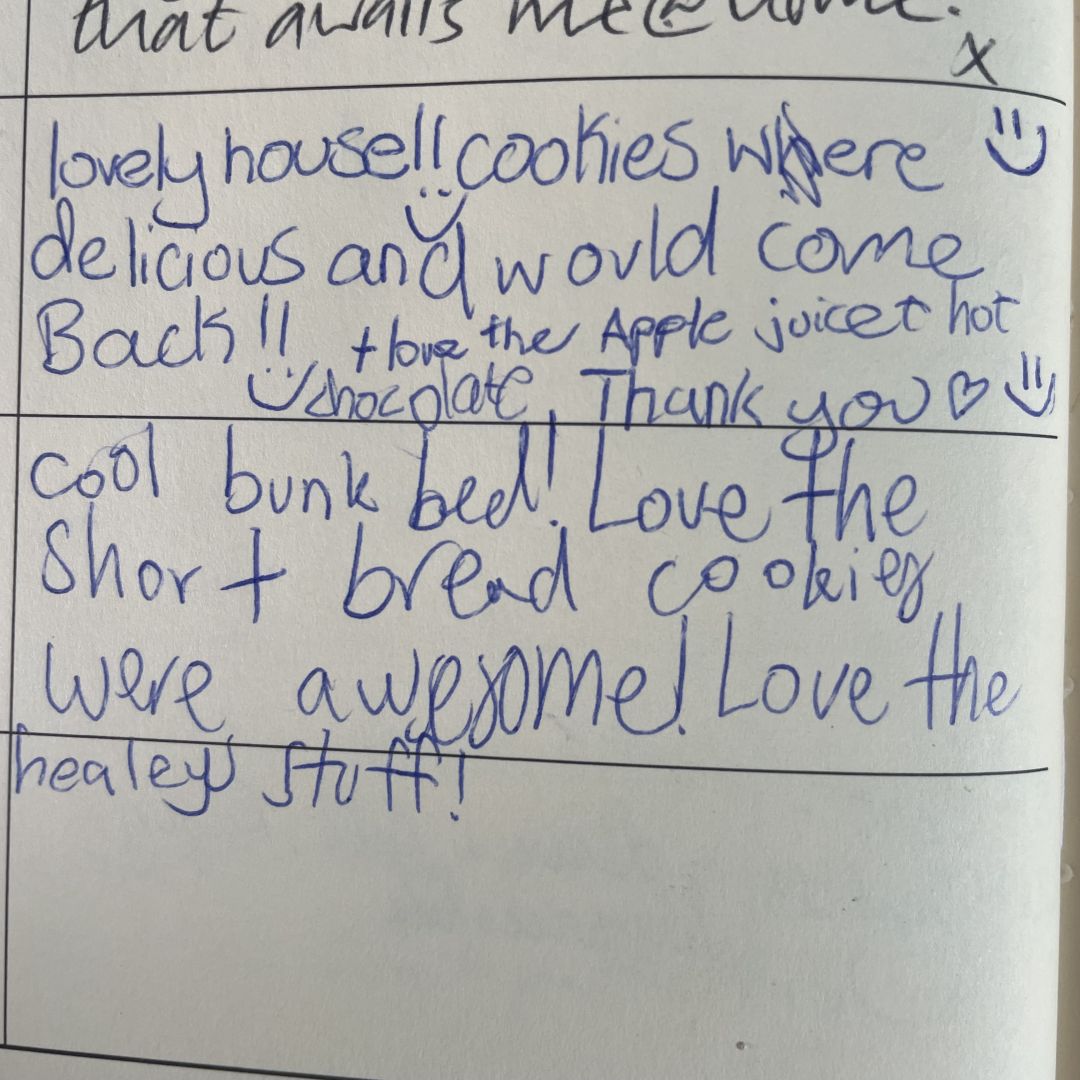 that awaits me @ home.
x
lovely house!! cookies where
delicious and would come
Back!! + love the Apple juice + hot
chocolate. Thank you
cool bunk bed! Love the
short bread cookies
were awesome! Love the
healeys stuff!